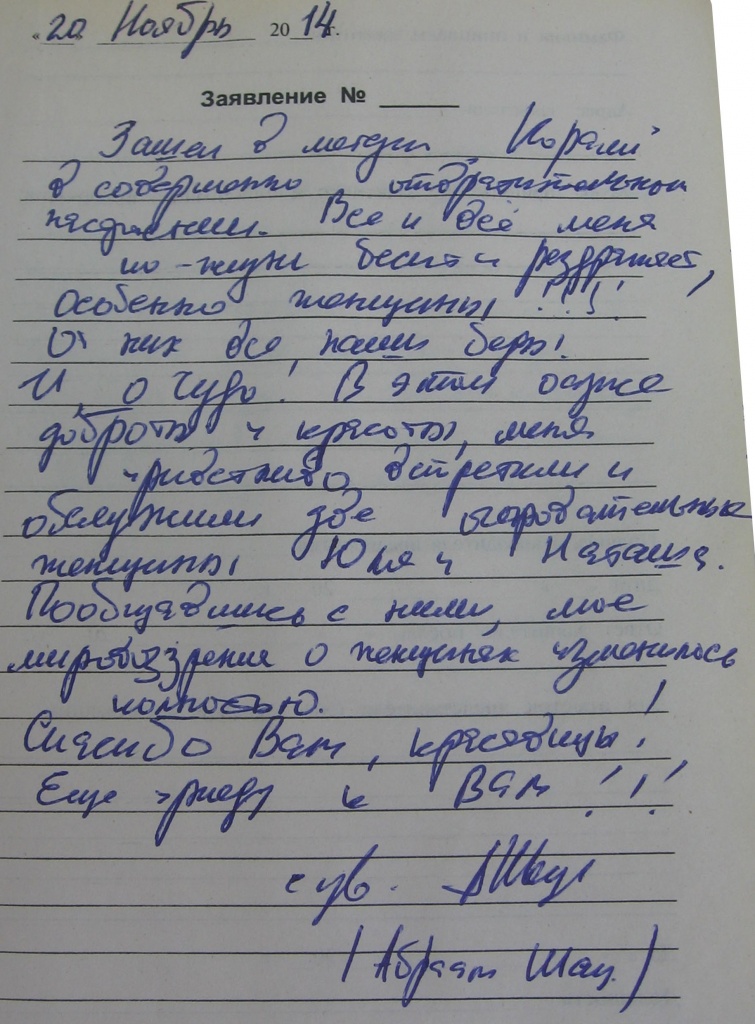 «20» Ноябрь 2014г.
Заявление № ____
Зашел в магазин "Коралл"
в совершенно отвратительном
настроении. Все и всё меня
по-жизни бесит и раздражает,
особенно женщины!!!
От них все наши беды!
И, о чудо! В этом оазисе
доброты и красоты, меня
приветливо встретили и
обслужили две очаровательные
женщины Юля и Наташа.
Пообщавшись с ними, мое
мировоззрения о женщинах изменилось
полностью.
Спасибо Вам, красавицы!
Еще приеду к Вам!!!
с ув.
(Абраам Шац.)